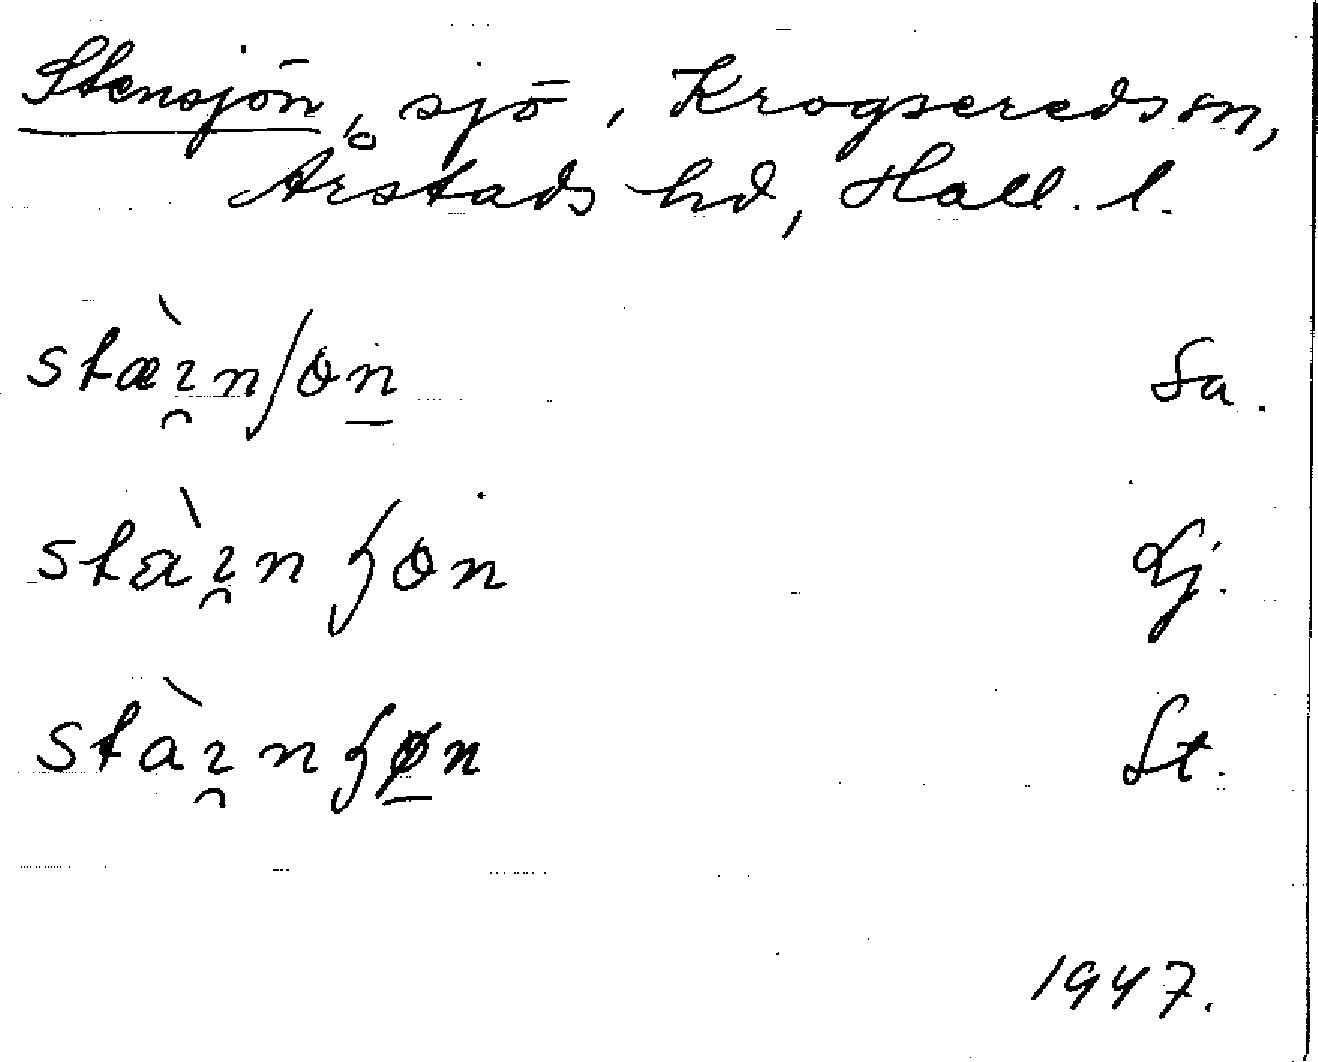 Stensjön, sjö, Krogseredssn,
Årstads hd, Hall. l.
stæ̀ı̯nʃɵn Sa.
stæ̀ı̯nɧɵn Lj.
stàı̯nɧøn St.
1947.